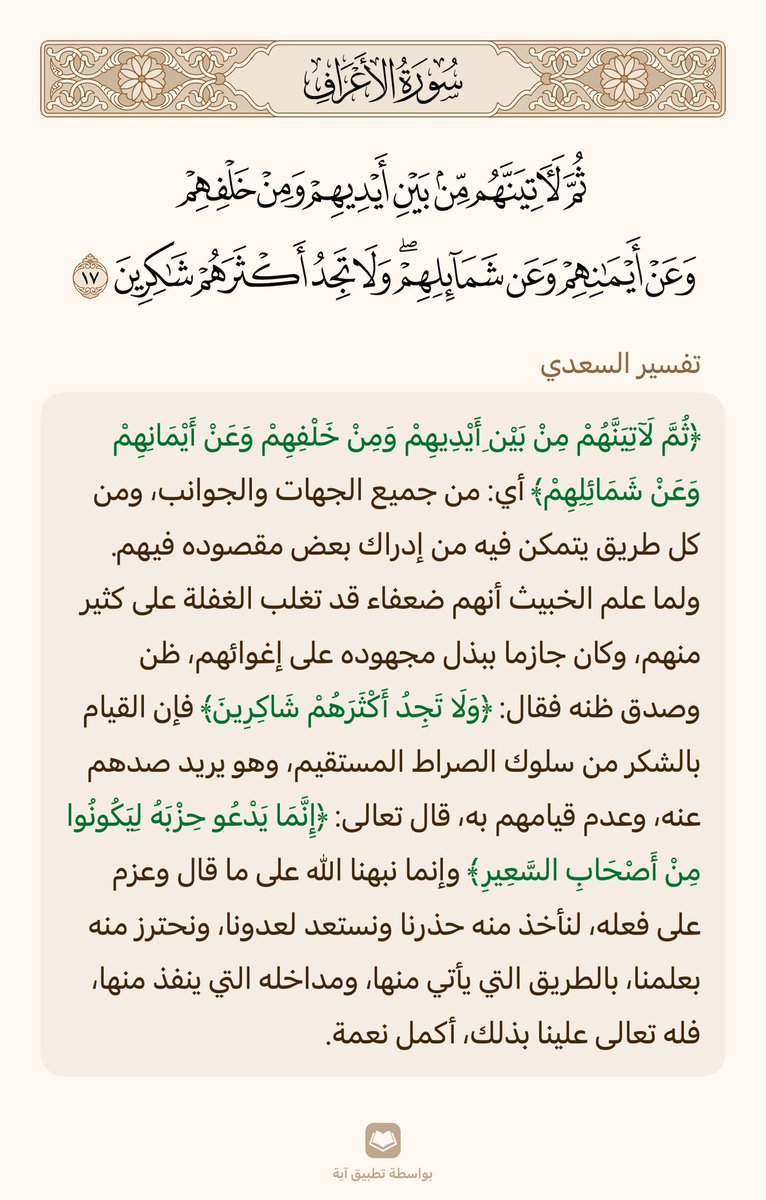 سُورَةُ الأَعۡرَافِ
ثُمَّ لَأٓتِيَنَّهُم مِّنۢ بَيۡنِ أَيۡدِيهِمۡ وَمِنۡ خَلۡفِهِمۡ
وَعَنۡ أَيۡمَٰنِهِمۡ وَعَن شَمَآئِلِهِمۡۖ وَلَا تَجِدُ أَكۡثَرَهُمۡ شَٰكِرِينَ ١٧
تفسير السعدي
﴿ثُمَّ لَآتِيَنَّهُمْ مِنْ بَيْنِ أَيْدِيهِمْ وَمِنْ خَلْفِهِمْ وَعَنْ أَيْمَانِهِمْ
وَعَنْ شَمَائِلِهِمْ﴾ أي: من جميع الجهات والجوانب، ومن
كل طريق يتمكن فيه من إدراك بعض مقصوده فيهم.
ولما علم الخبيث أنهم ضعفاء قد تغلب الغفلة على كثير
منهم، وكان جازما ببذل مجهوده على إغوائهم، ظن
وصدق ظنه فقال: ﴿وَلَا تَجِدُ أَكْثَرَهُمْ شَاكِرِينَ﴾ فإن القيام
بالشكر من سلوك الصراط المستقيم، وهو يريد صدهم
عنه، وعدم قيامهم به، قال تعالى: ﴿إِنَّمَا يَدْعُو حِزْبَهُ لِيَكُونُوا
مِنْ أَصْحَابِ السَّعِيرِ﴾ وإنما نبهنا الله على ما قال وعزم
على فعله، لنأخذ منه حذرنا ونستعد لعدونا، ونحترز منه
بعلمنا، بالطريق التي يأتي منها، ومداخله التي ينفذ منها،
فله تعالى علينا بذلك، أكمل نعمة.
بواسطة تطبيق آية